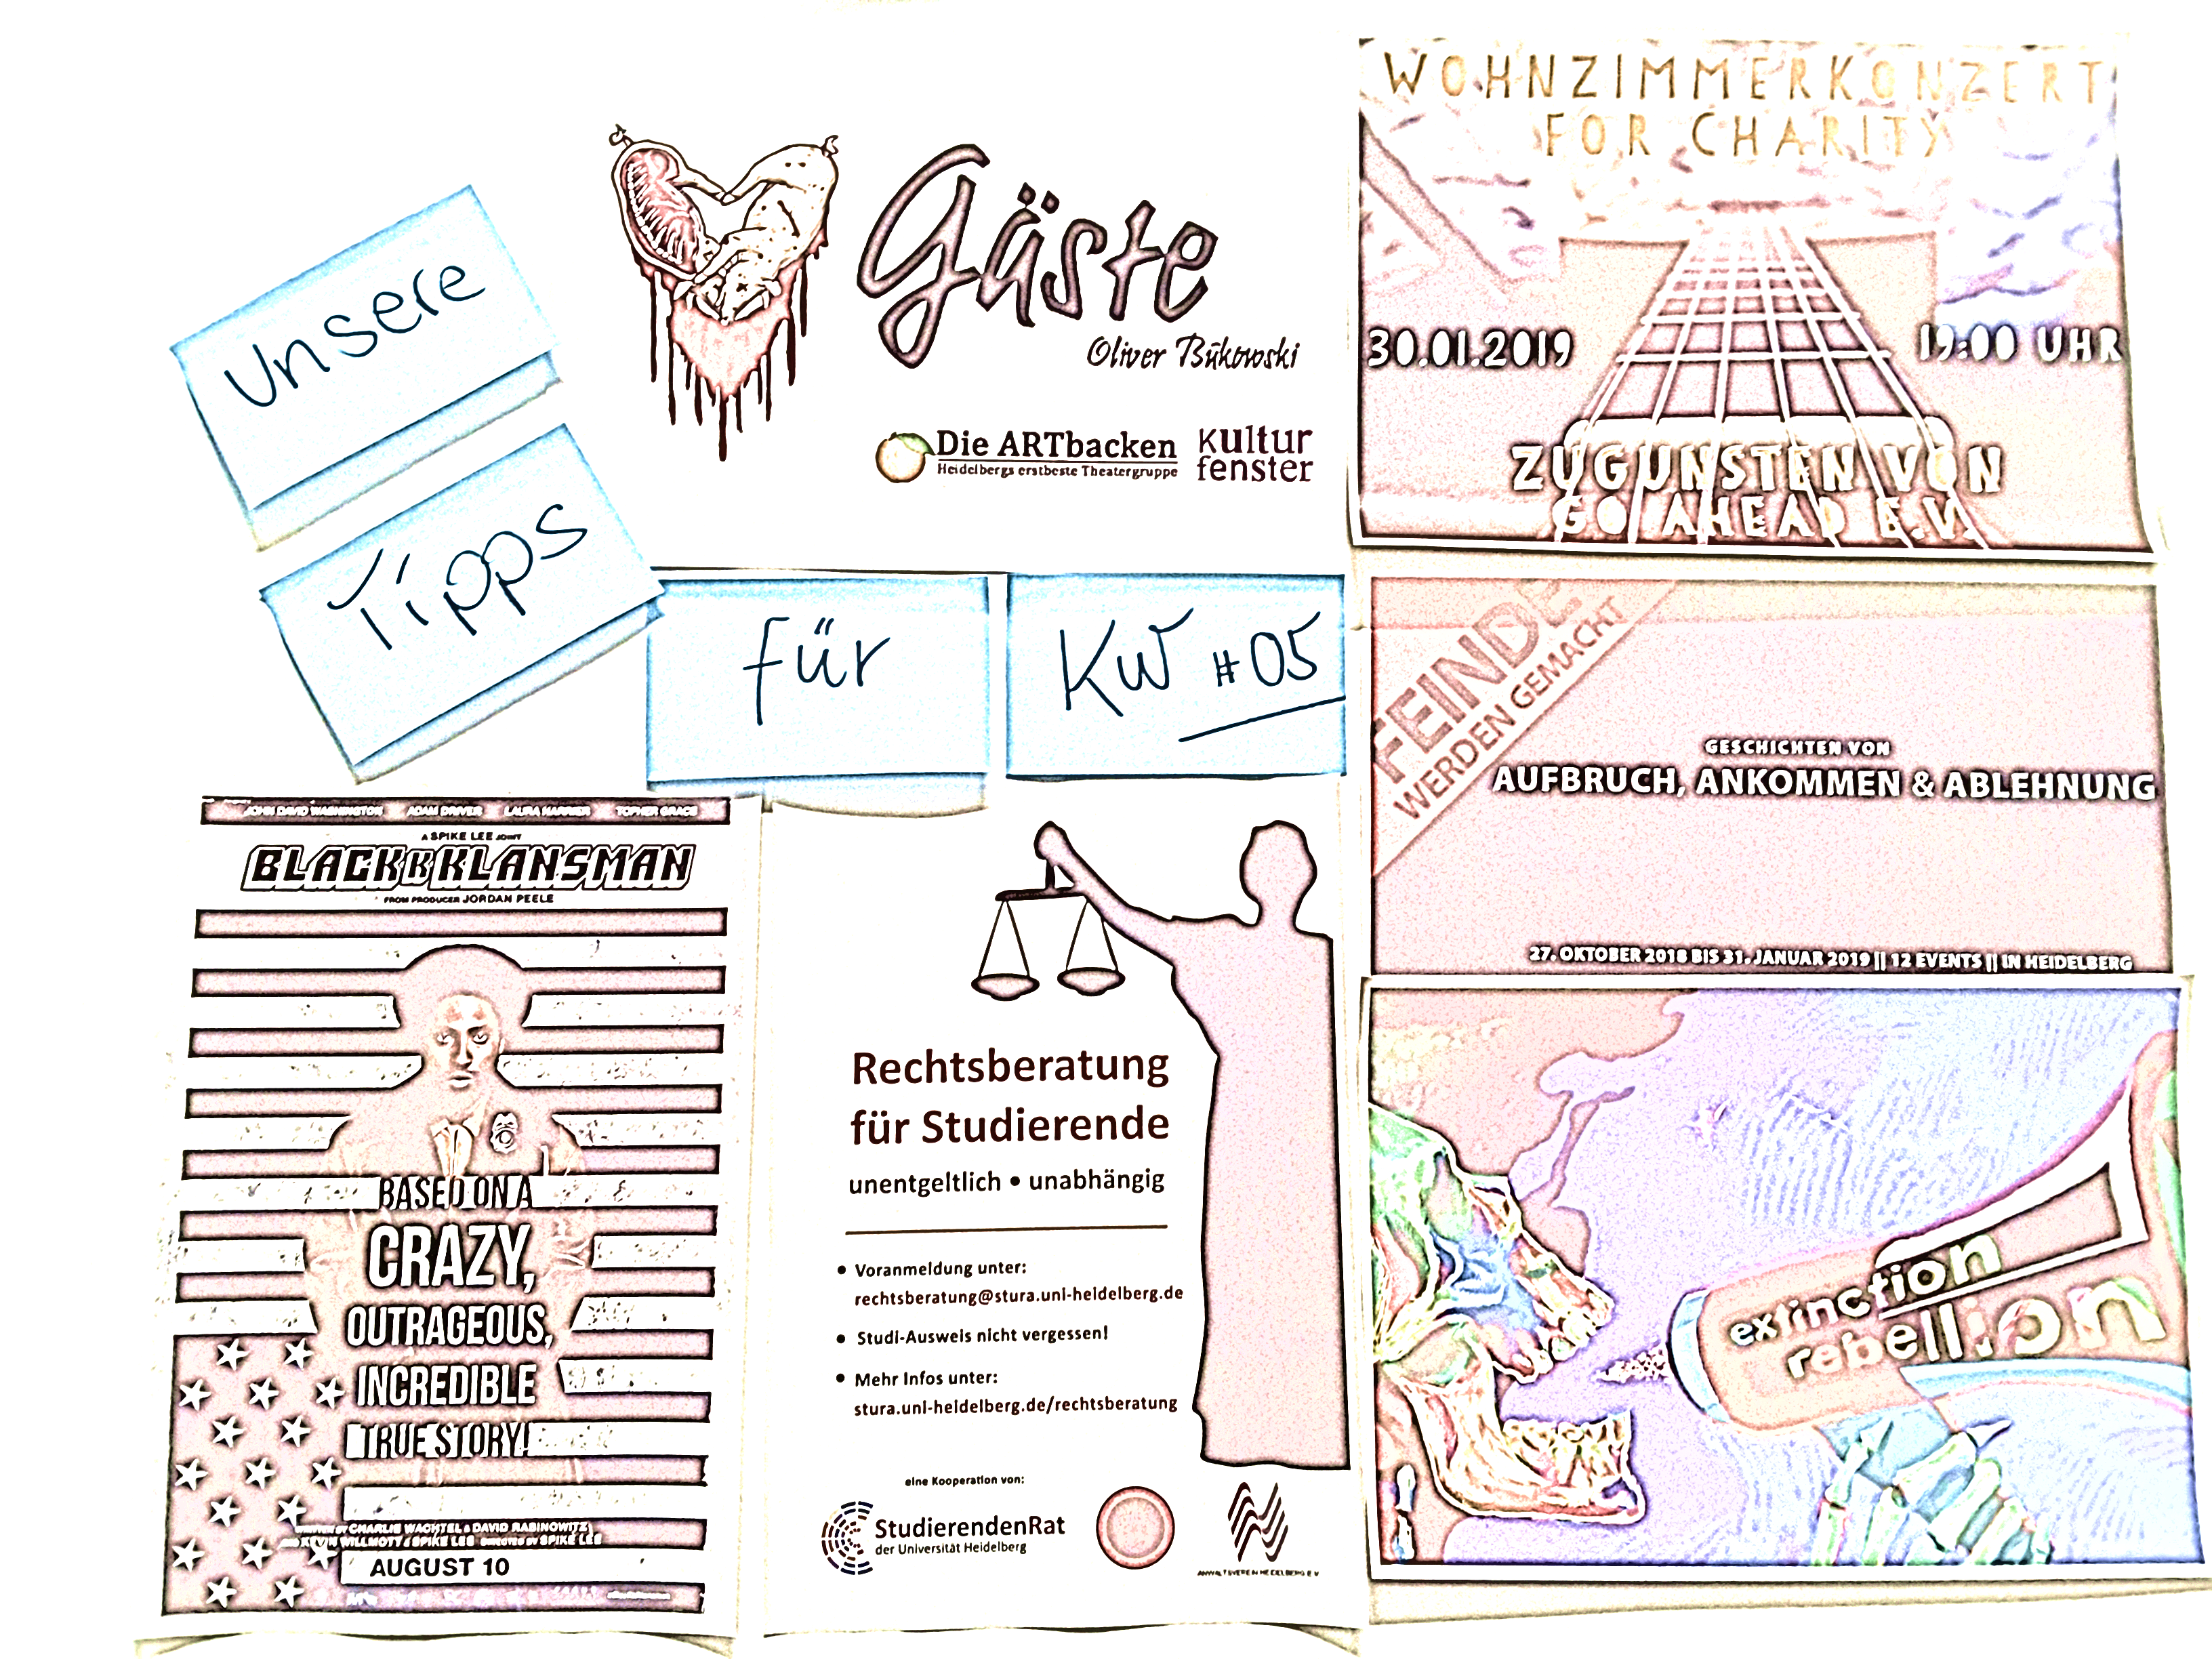 Unsere
Tipps
für
KW #05
Gäste
Oliver Bukowski
Die ARTbacken
Heidelbergs erstbeste Theatergruppe
Kultur
fenster
WOHNZIMMERKONZERT
FOR CHARITY
30.01.2019
19:00 UHR
ZUGUNSTEN VON
GO AHEAD E.V.
FEINDE
WERDEN GEMACHT
GESCHICHTEN VON
AUFBRUCH, ANKOMMEN & ABLEHNUNG
27. OKTOBER 2018 BIS 31. JANUAR 2019 || 12 EVENTS || IN HEIDELBERG
JOHN DAVID WASHINGTON ADAM DRIVER LAURA HARRIER TOPHER GRACE
A SPIKE LEE JOINT
BLACKKKLANSMAN
FROM PRODUCER JORDAN PEELE
BASED ON A
CRAZY,
OUTRAGEOUS,
INCREDIBLE
TRUE STORY!
WRITTEN BY CHARLIE WACHTEL & DAVID RABINOWITZ
AND KEVIN WILLMOTT & SPIKE LEE DIRECTED BY SPIKE LEE
AUGUST 10
Rechtsberatung
für Studierende
unentgeltlich • unabhängig
• Voranmeldung unter:
rechtsberatung@stura.uni-heidelberg.de
• Studi-Ausweis nicht vergessen!
• Mehr Infos unter:
stura.uni-heidelberg.de/rechtsberatung
eine Kooperation von:
StudierendenRat
der Universität Heidelberg
ANWALTSVEREIN HEIDELBERG E.V.
extinction
rebellion